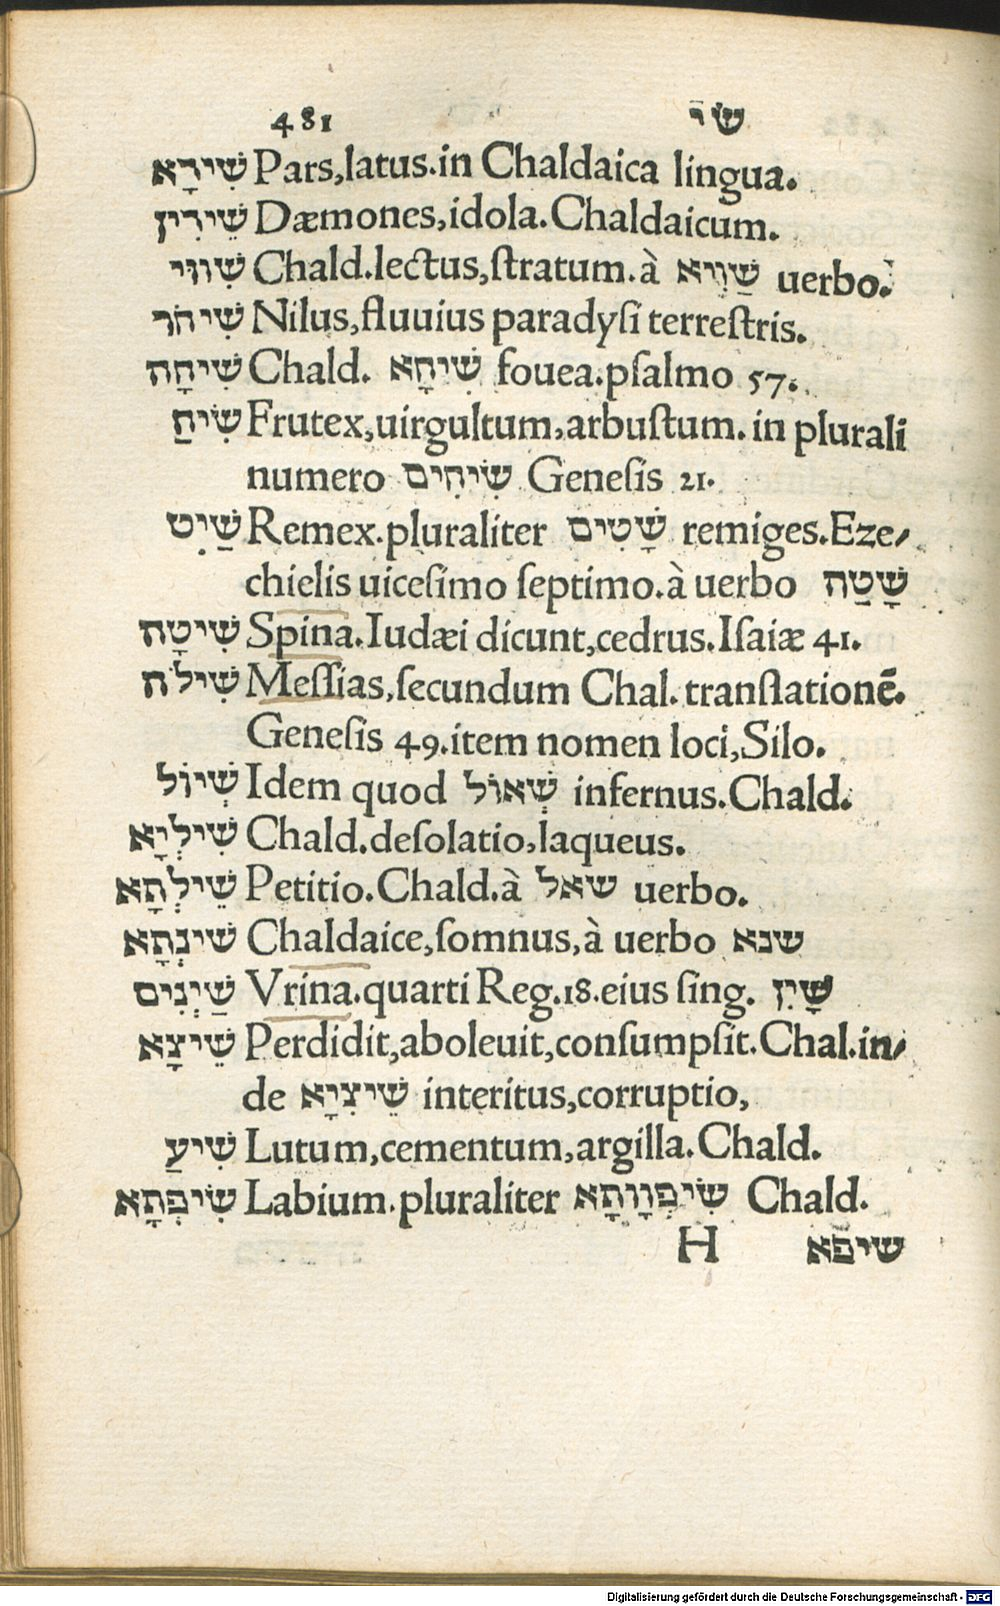 481 שי
שִׁירָא Pars,latus.in Chaldaica lingua.
שֵׁירִין Dæmones,idola.Chaldaicum.
שִׁווּי Chald.lectus,ſtratum.à שַׁוְיא uerbo.
שִׁיחֹר Nilus,fluuius paradyſi terreſtris.
שִׁיחָה Chald. שִׁיחָא fouea.pſalmo 57.
שִׂיחַ Frutex,uirgultum,arbuſtum.in plurali
numero שִׂיחִים Geneſis 21.
שַׁיִט Remex.pluraliter שָׁטִים remiges.Eze-
chielis uiceſimo ſeptimo.à uerbo שָׁטַה
שִׁיטָה Spina.Iudæi dicunt,cedrus.Iſaiæ 41.
שִׁילֹה Meſſias,ſecundum Chal.tranſlationē.
Geneſis 49.item nomen loci,Silo.
שְׁיוֹל Idem quod שְׁאוֹל infernus.Chald.
שִׁילְיָא Chald.deſolatio,laqueus.
שֵׁילְתָא Petitio.Chald.à שאל uerbo.
שִׁינְתָא Chaldaice,ſomnus,à uerbo שנא
שַׁיְנִים Vrina.quarti Reg.18.eius ſing. שָׁיִן
שֵׁיצָא Perdidit,aboleuit,conſumpſit.Chal.in-
de שֵׁיצִיָא interitus,corruptio,
שִׁיעַ Lutum,cementum,argilla.Chald.
שִׂיפְתָא Labium.pluraliter שִׂיפְוָותָא Chald.
H שיפא
Digitalisierung gefördert durch die Deutsche Forschungsgemeinschaft - DFG